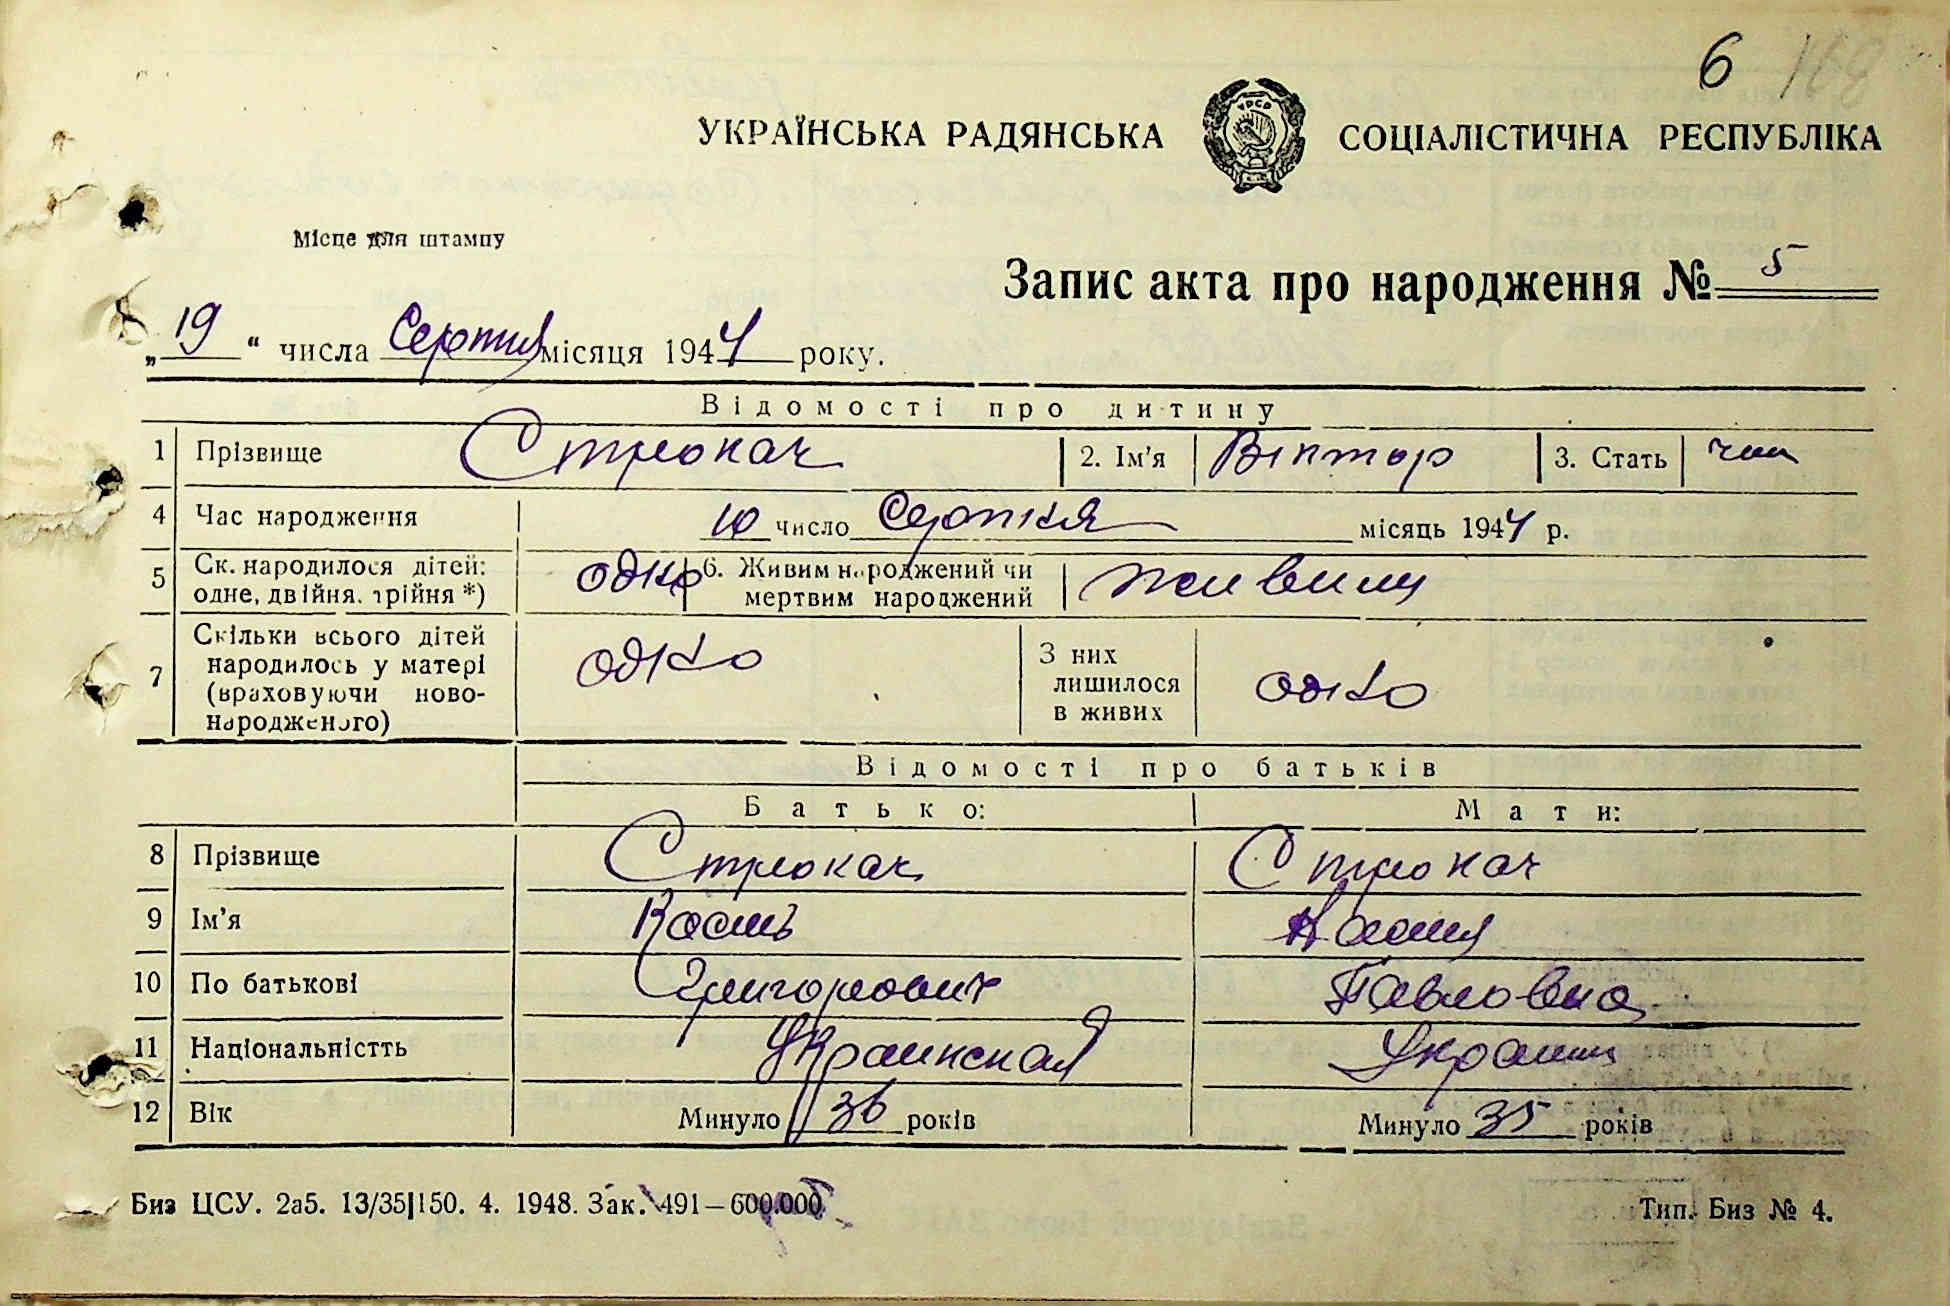 6 168
УКРАЇНСЬКА РАДЯНСЬКА СОЦІАЛІСТИЧНА РЕСПУБЛІКА
УРСР
Місце для штампу
Запис акта про народження № 5
„19“ числа Серпня місяця 1944 року.
Відомості про дитину
1 Прізвище Стрюкач 2. Ім'я Віктор 3. Стать чол
4 Час народження 10 число Серпня місяць 1944 р.
5 Ск. народилося дітей: одно 6. Живим народжений чи Живим
одне, двійня, трійня *) мертвим народжений
7 Скільки всього дітей
народилось у матері
(враховуючи ново-
народженого) одно
З них
лишилося
в живих одно
Відомості про батьків
Батько: Мати:
8 Прізвище Стрюкач Стрюкач
9 Ім'я Василь
10 По батькові Григорович Павловна
11 Національністть Украинская Украин
12 Вік Минуло 36 років Минуло 35 років
Биз ЦСУ. 2а5. 13/35|150. 4. 1948. Зак. 491—600.000. Тип. Биз № 4.